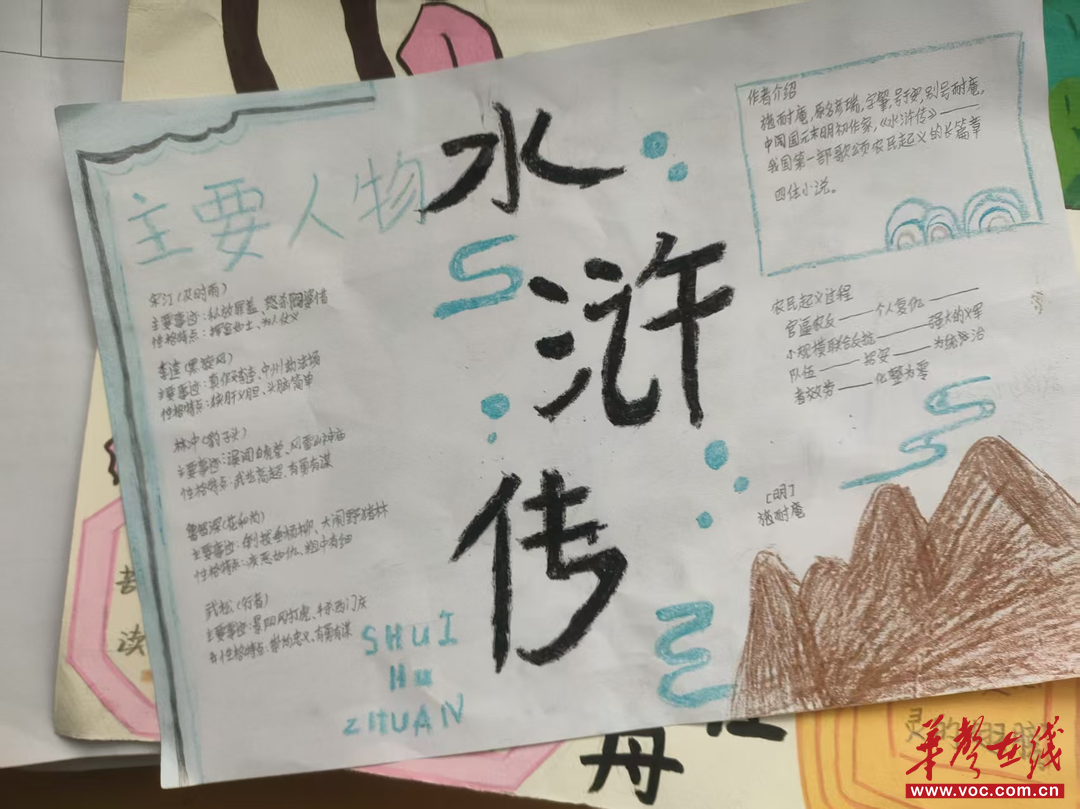 水
浒
传
主要人物
宋江(及时雨)
主要事迹:私放晁盖、怒杀阎婆惜
性格特点:挥金如土、为人仗义
李逵(黑旋风)
主要事迹:真假李逵、中州劫法场
性格特点:侠肝义胆、头脑简单
林冲(豹子头)
主要事迹:误闯白虎堂、风雪山神庙
性格特点:武艺高超、有勇有谋
鲁智深(花和尚)
主要事迹:倒拔垂杨柳、大闹野猪林
性格特点:疾恶如仇、粗中有细
武松(行者)
主要事迹:景阳冈打虎、斗杀西门庆
性格特点:崇尚忠义、有勇有谋
SHUI
Hu
ZHUAN
作者介绍
施耐庵,原名彦瑞,字肇,号子安,别号耐庵,
中国元末明初作家,《水浒传》——
我国第一部歌颂农民起义的长篇章
回体小说。
农民起义过程
官逼农反——个人复仇——
小规模联合反抗——强大的义军
队伍——招安——为统治
者效劳——化整为零
[明]
施耐庵
读
舟
灵的
华声在线
www.voc.com.cn